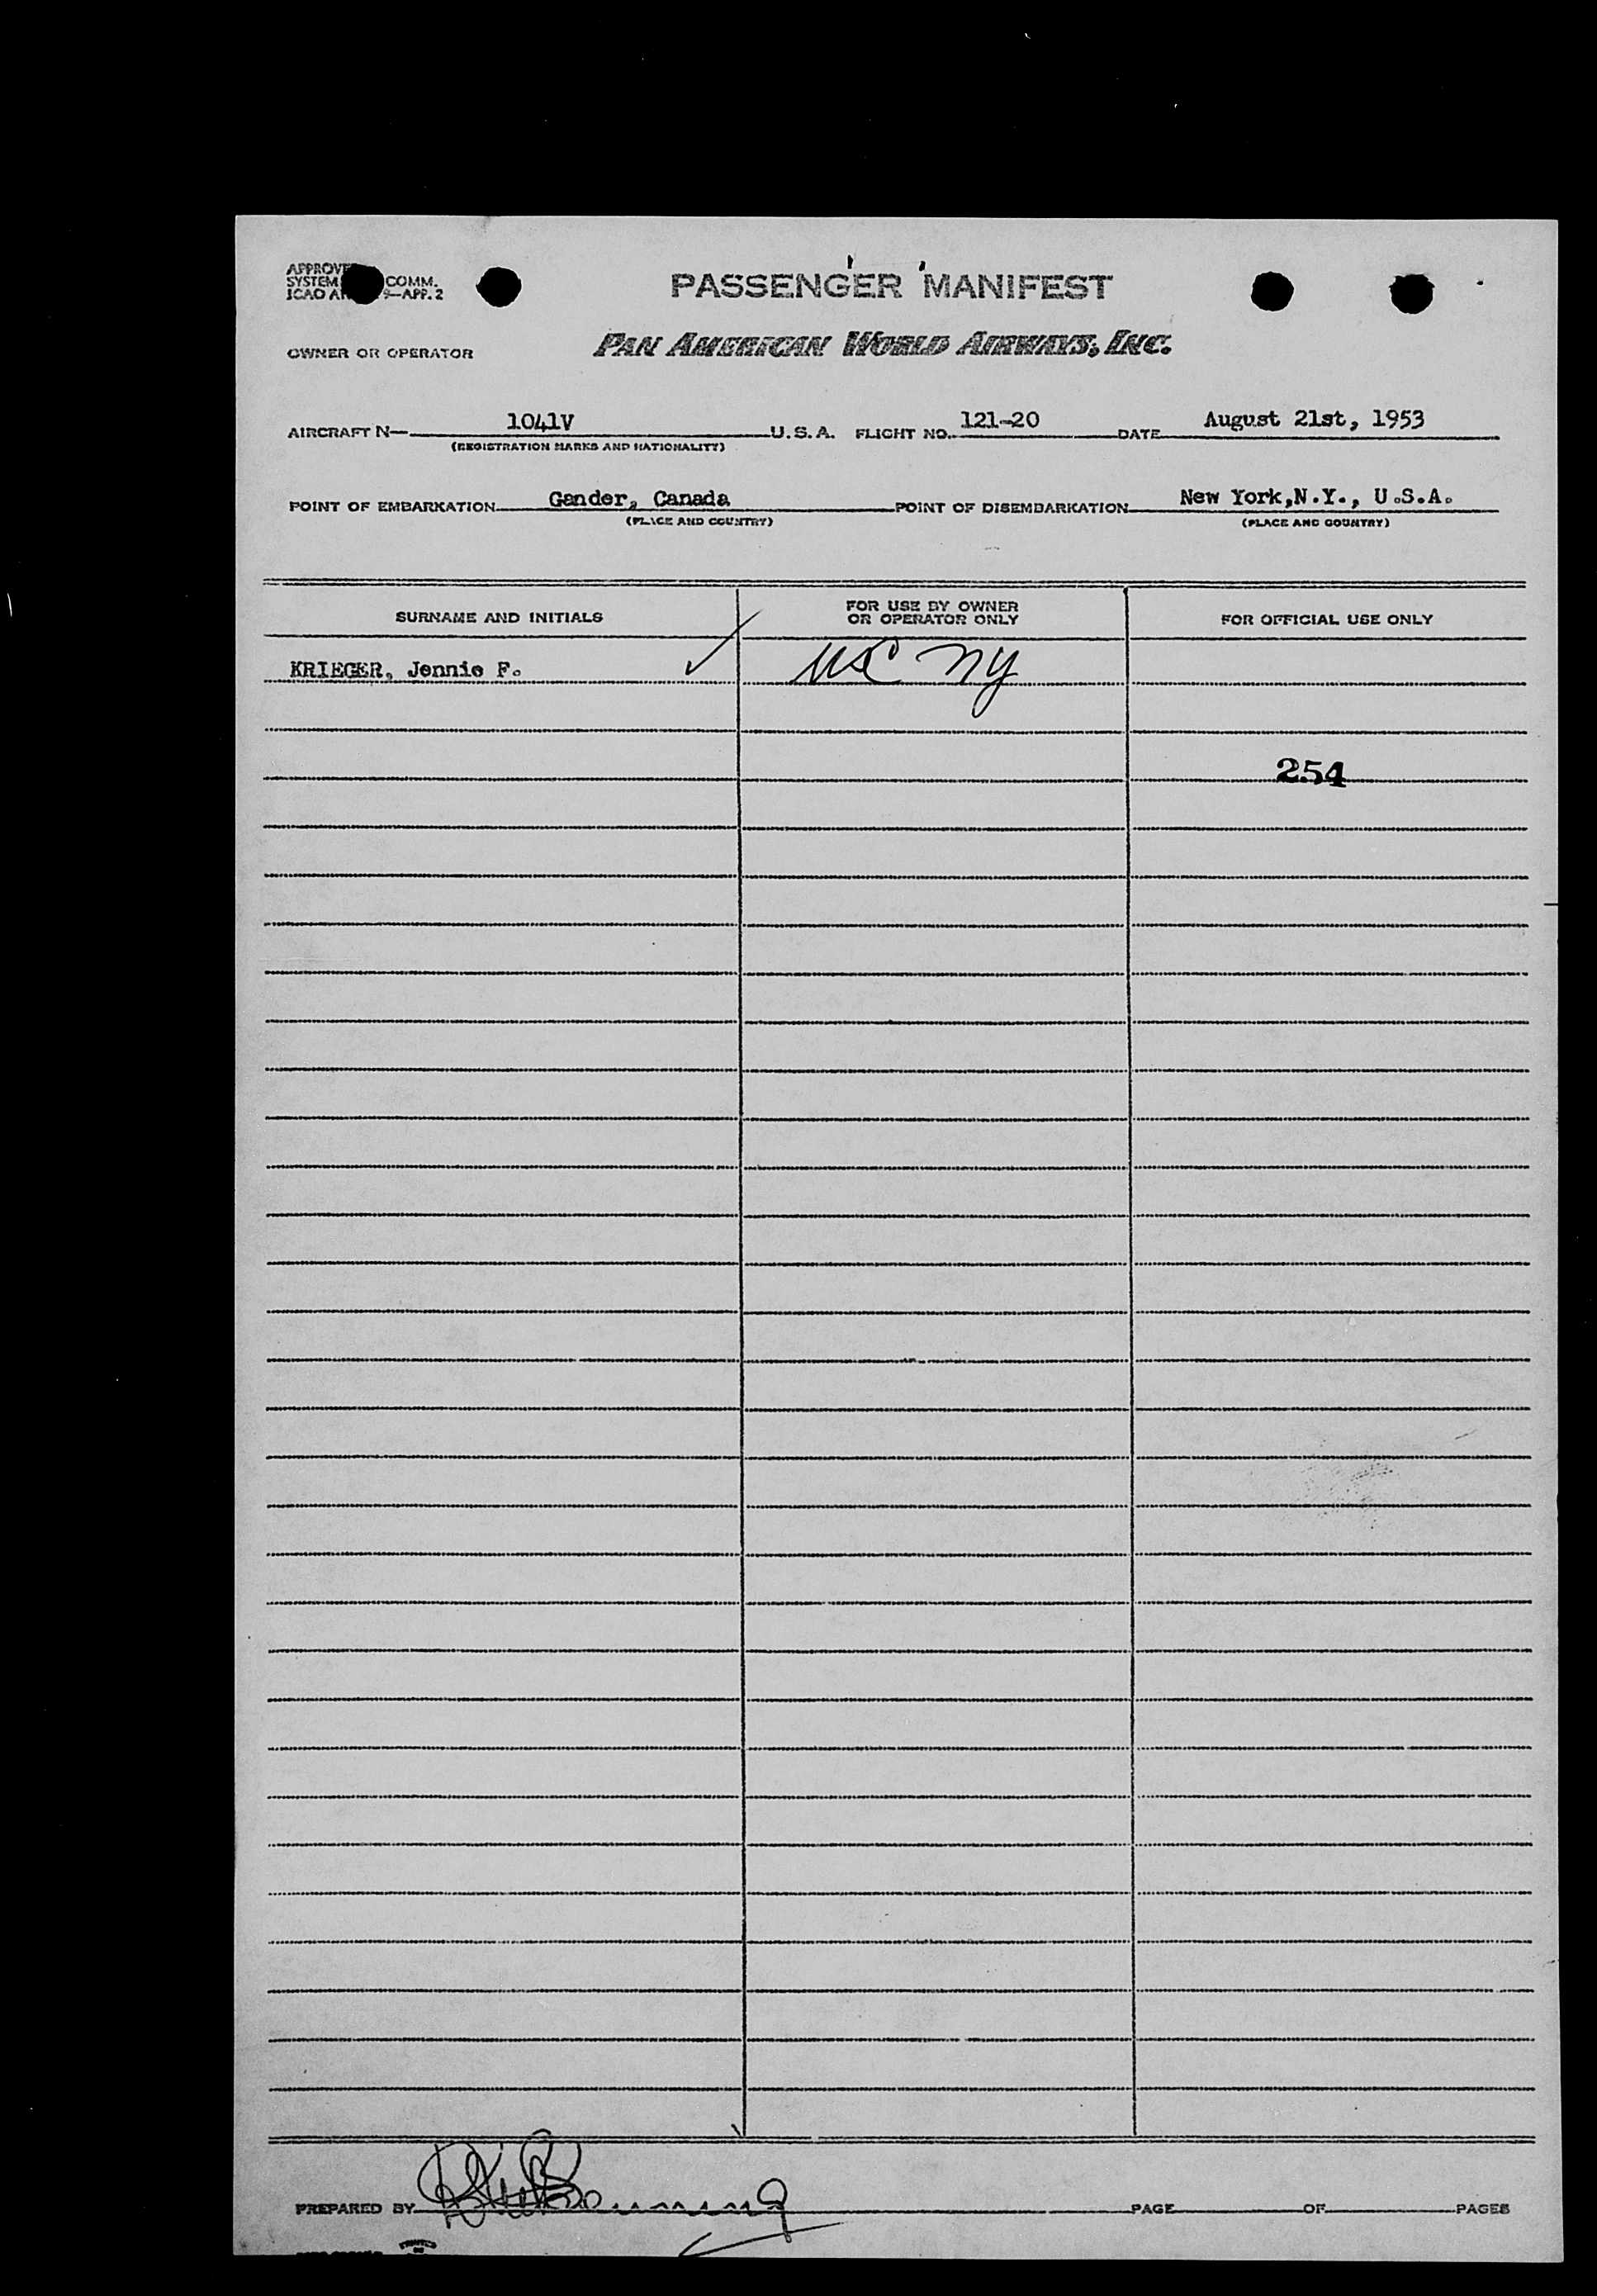 APPROVE
SYSTEM COMM.
ICAO AN 9—APP. 2
PASSENGER MANIFEST
OWNER OR OPERATOR PAN AMERICAN WORLD AIRWAYS, INC.
AIRCRAFT N— 1041V U.S.A. FLIGHT NO. 121-20 DATE August 21st, 1953
(REGISTRATION MARKS AND NATIONALITY)
POINT OF EMBARKATION Gander, Canada POINT OF DISEMBARKATION New York, N.Y., U.S.A.
(PLACE AND COUNTRY) (PLACE AND COUNTRY)
SURNAME AND INITIALS FOR USE BY OWNER OR OPERATOR ONLY FOR OFFICIAL USE ONLY
KRIEGER, Jennie F. ✓ USC NY
254
PREPARED BY PAGE OF PAGES